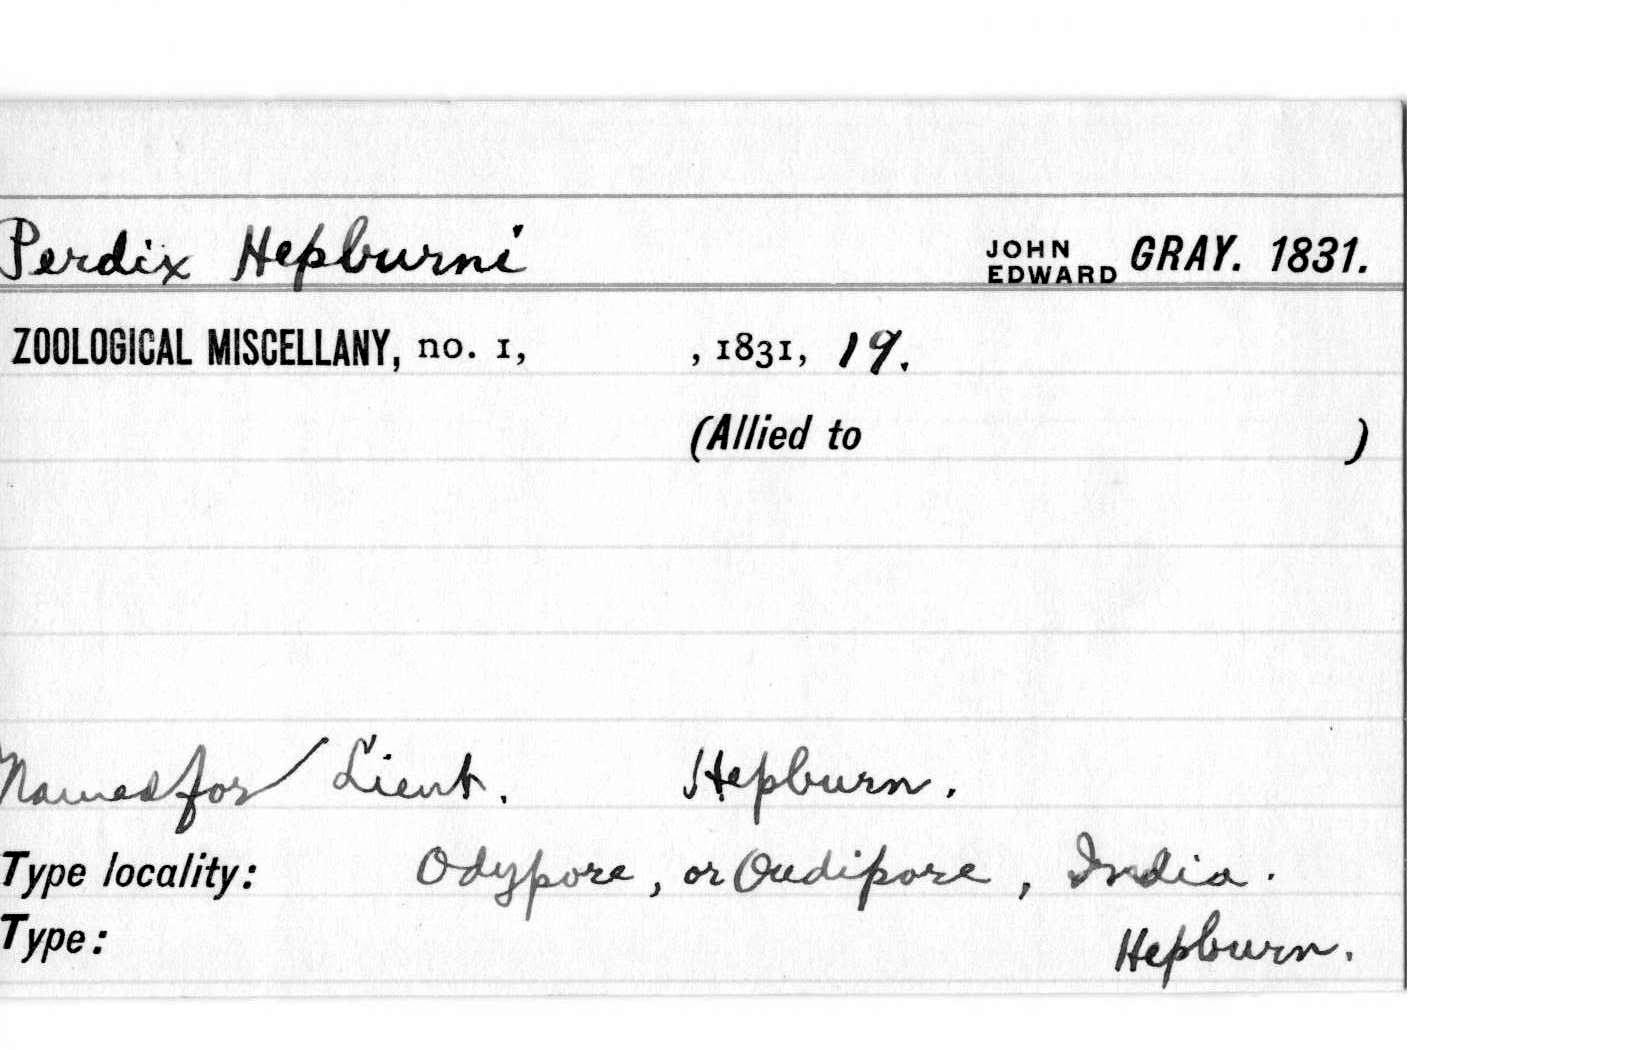 Perdix Hepburni JOHN EDWARD GRAY. 1831.
ZOOLOGICAL MISCELLANY, no. 1, , 1831, 19.
(Allied to )
Named for Lieut. Hepburn.
Type locality: Odypore, or Oudipore, India.
Type: Hepburn.